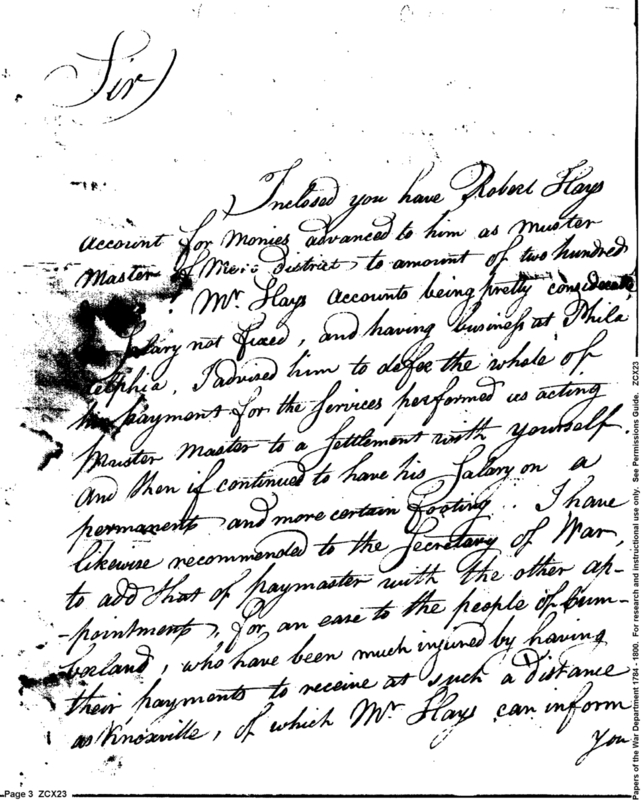 Sir
Inclosed you have Robert Hays
account for monies advanced to him as muster
Master of Mero district to amount of two hundred
Mr Hays accounts being pretty considerable
Salary not fixed, and having business at Phila
delphia, I advised him to defer the whole of
his payment for the services performed as acting
Muster Master to a settlement with yourself.
and then if continued to have his Salary on a
permanent and more certain footing.. I have
likewise recommended to the Secretary of War,
to add that of paymaster with the other ap-
-pointment, for an ease to the people of Cum-
berland, who have been much injured by having
their payments to receive at such a distance
as Knoxville, of which Mr Hays can inform
you
Page 3 ZCX23
Papers of the War Department 1784 - 1800. For research and instructional use only. See Permissions Guide. ZCX23